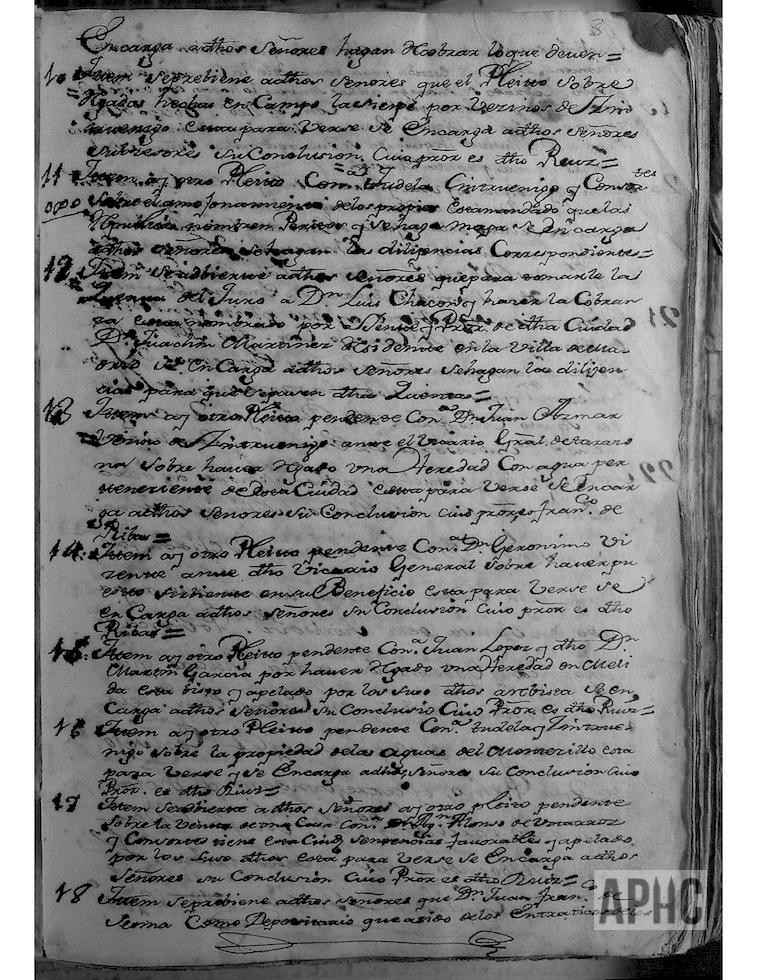 8
Encarga adhos Señores hagan Cobrar lo que deven=
10. Ittem seprebiene adhos señores que el Pleitto sobre
Rgadas hechas en Campo la sierpe por Vezinos de Zin
truenigo esta para Verse Se Encarga adhos señores
subzesores su Conclusion, Cuio pror es dho Ruiz=
11 Ittem ay otro Pleito Con.a Tudela Cintruenigo y Consor.tes
Sobre el amojonamiento delos propios Estamandado que las
Republicas nombren Peritos y se haga Mapa Se Encarga
adhos señores sehagan las diligencias Correspondientes=
12 Ittem Seadbierte adhos señores quepara tomarle la
Quenta del Juro a D.n Luis Chacon y hacer la Cobran
za esta nombrado por Ajente y Pror. de dha Ciudad
D.n Juachin Martinez Residente en la Villa de Ma
drid se enCarga adhos señores sehagan las dilijen
cias para que sepasen dhas Quentas=
13 Ittem ay otro Pleito pendente Con.a D.n Juan Aznar
Vezino de Zintruenigo ante el Vicario Gral. de tarazo
na sobre haver Rgado vna Heredad Con agua per
teneziente de esta Ciudad esta para Verse Se Encar
ga adhos señores su Conclusion cuio pror es Fran.co de
Ribas=
14. Ittem ay otro Pleitto pendente Con.a D.n Geronimo Vi
zente ante dho Vicario General sobre haver pu
esto sirbiente en su Beneficio esta para Verse Se
en Carga adhos señores su Conclusion Cuio pror es dho
Ribas=
15. Ittem ay otro Pleitto pendente Con.a Juan Lopez y dho D.n
Martin Garcia por haver Rgado vna Heredad en Meli
da esta bisto y apelado por los Suso dhos arebista Se en
Carga adhos señores su Conclusio Cuio Pror. es dho Ruiz=
16 Ittem ay otro Pleito pendente Con.a tudela y Zintrue
nigo sobre la propiedad delas aguas del Monterillo esta
para Verse y se Encarga adhos señores su Conclusion Cuio
Pror. es dho Ruiz=
17 Ittem Seadbierte adhos Señores ay otro pleito pendente
sobre la Venta de una Casa Con.a Alonso de
y Consortes tiene esta Ciud. sentencias favorables y apelado
por los Suso dhos esta para Verse se Encarga adhos
señores su Conclusion Cuio Pror es dho Ruiz=
18 Ittem seprebiene adhos señores que D.n Juan Fran.co de
Sesma Como Depositario que asido delos
APHC